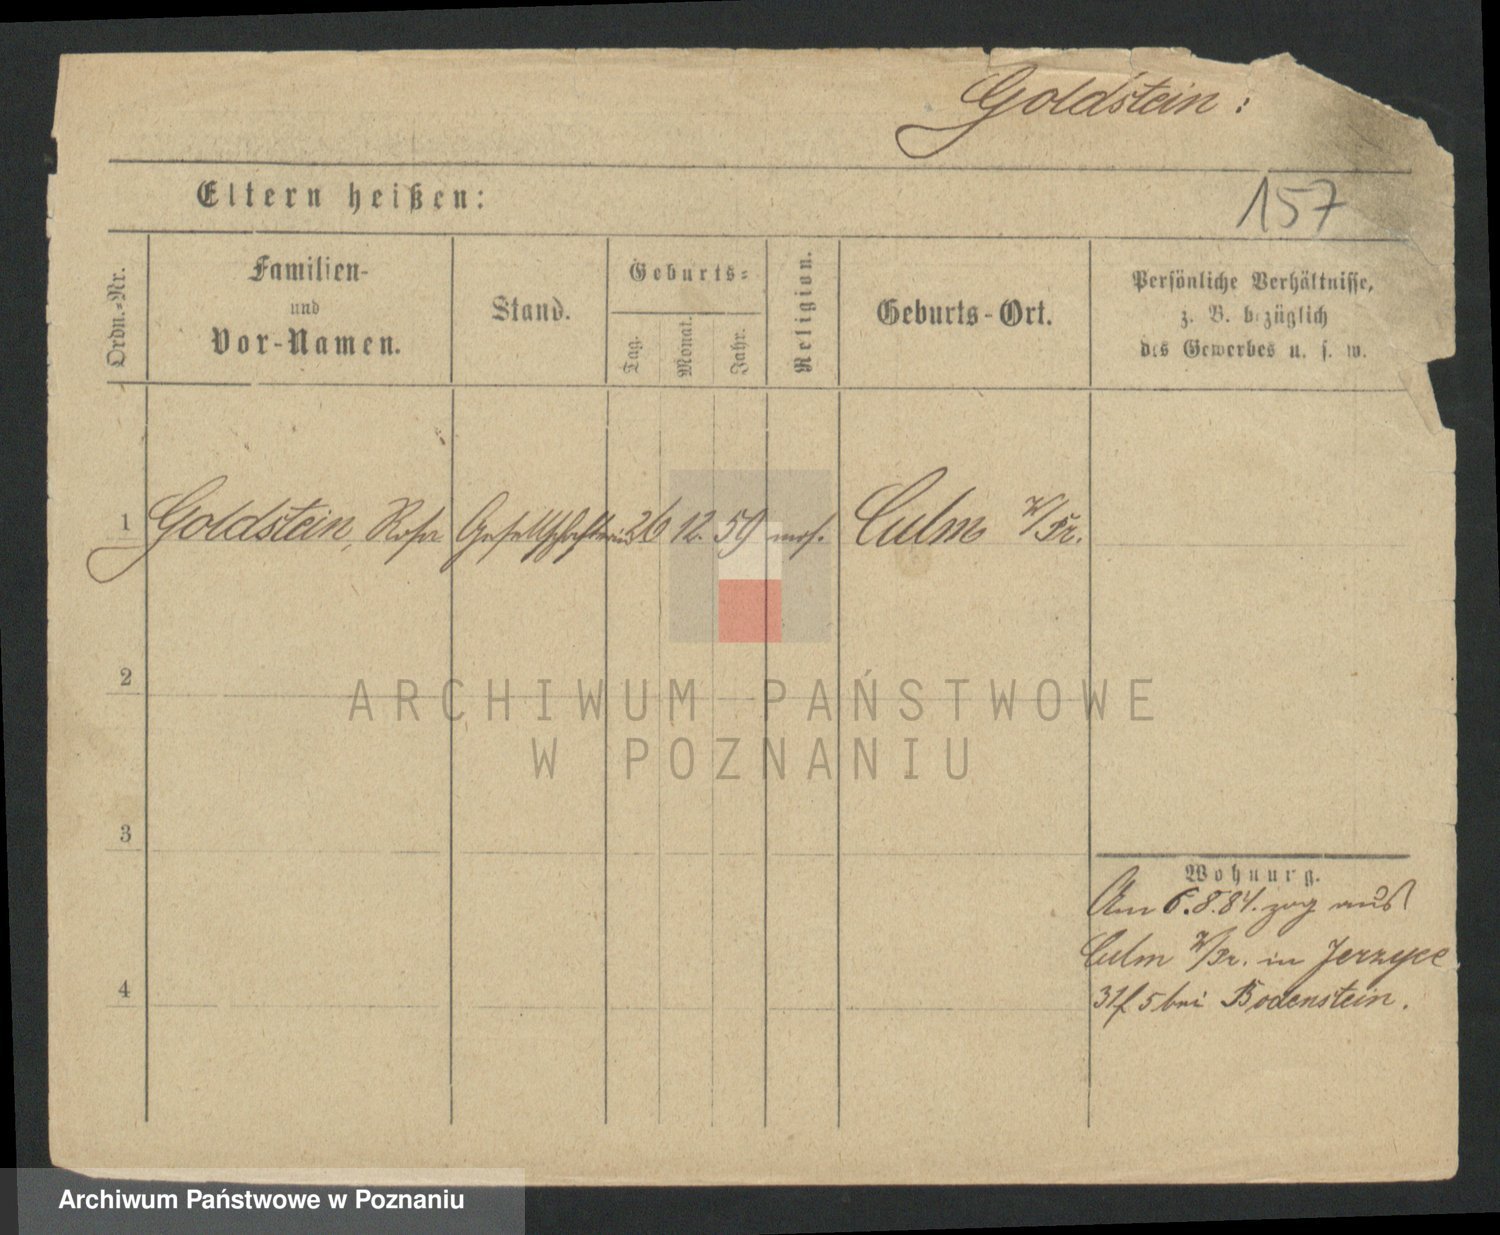 Goldstein:
Eltern heißen:
157
Ordn.-Nr.
Familien-
und
Vor-Namen.
Stand.
Geburts-
Tag.
Monat.
Jahr.
Religion.
Geburts-Ort.
Persönliche Verhältnisse,
z. B. bezüglich
des Gewerbes u. s. w.
1 Goldstein, Rosa Gesellschafterin 26 12. 59 mos. Culm W/Pr.
2
3
4
Wohnung.
Am 6.8.84. zog aus
Culm W/Pr. in Jerzyce
bei Bodenstein.
ARCHIWUM PAŃSTWOWE
W POZNANIU
Archiwum Państwowe w Poznaniu